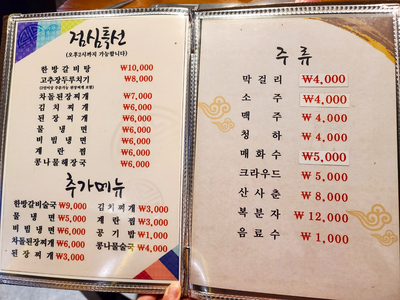 점심특선
(오후2시까지 가능합니다)
한방갈비탕 ₩10,000
고추장두루치기 ₩8,000
차돌된장찌개 ₩7,000
김치찌개 ₩6,000
된장찌개 ₩6,000
물냉면 ₩6,000
비빔냉면 ₩6,000
계란찜 ₩6,000
콩나물해장국 ₩6,000
추가메뉴
한방갈비술국 ₩9,000
물냉면 ₩5,000
비빔냉면 ₩6,000
차돌된장찌개 ₩6,000
된장찌개 ₩3,000
김치찌개 ₩3,000
계란찜 ₩3,000
공기밥 ₩1,000
콩나물술국 ₩4,000
주류
막걸리 ₩4,000
소주 ₩4,000
맥주 ₩4,000
청하 ₩4,000
매화수 ₩5,000
크라우드 ₩5,000
산사춘 ₩8,000
복분자 ₩12,000
음료수 ₩1,000